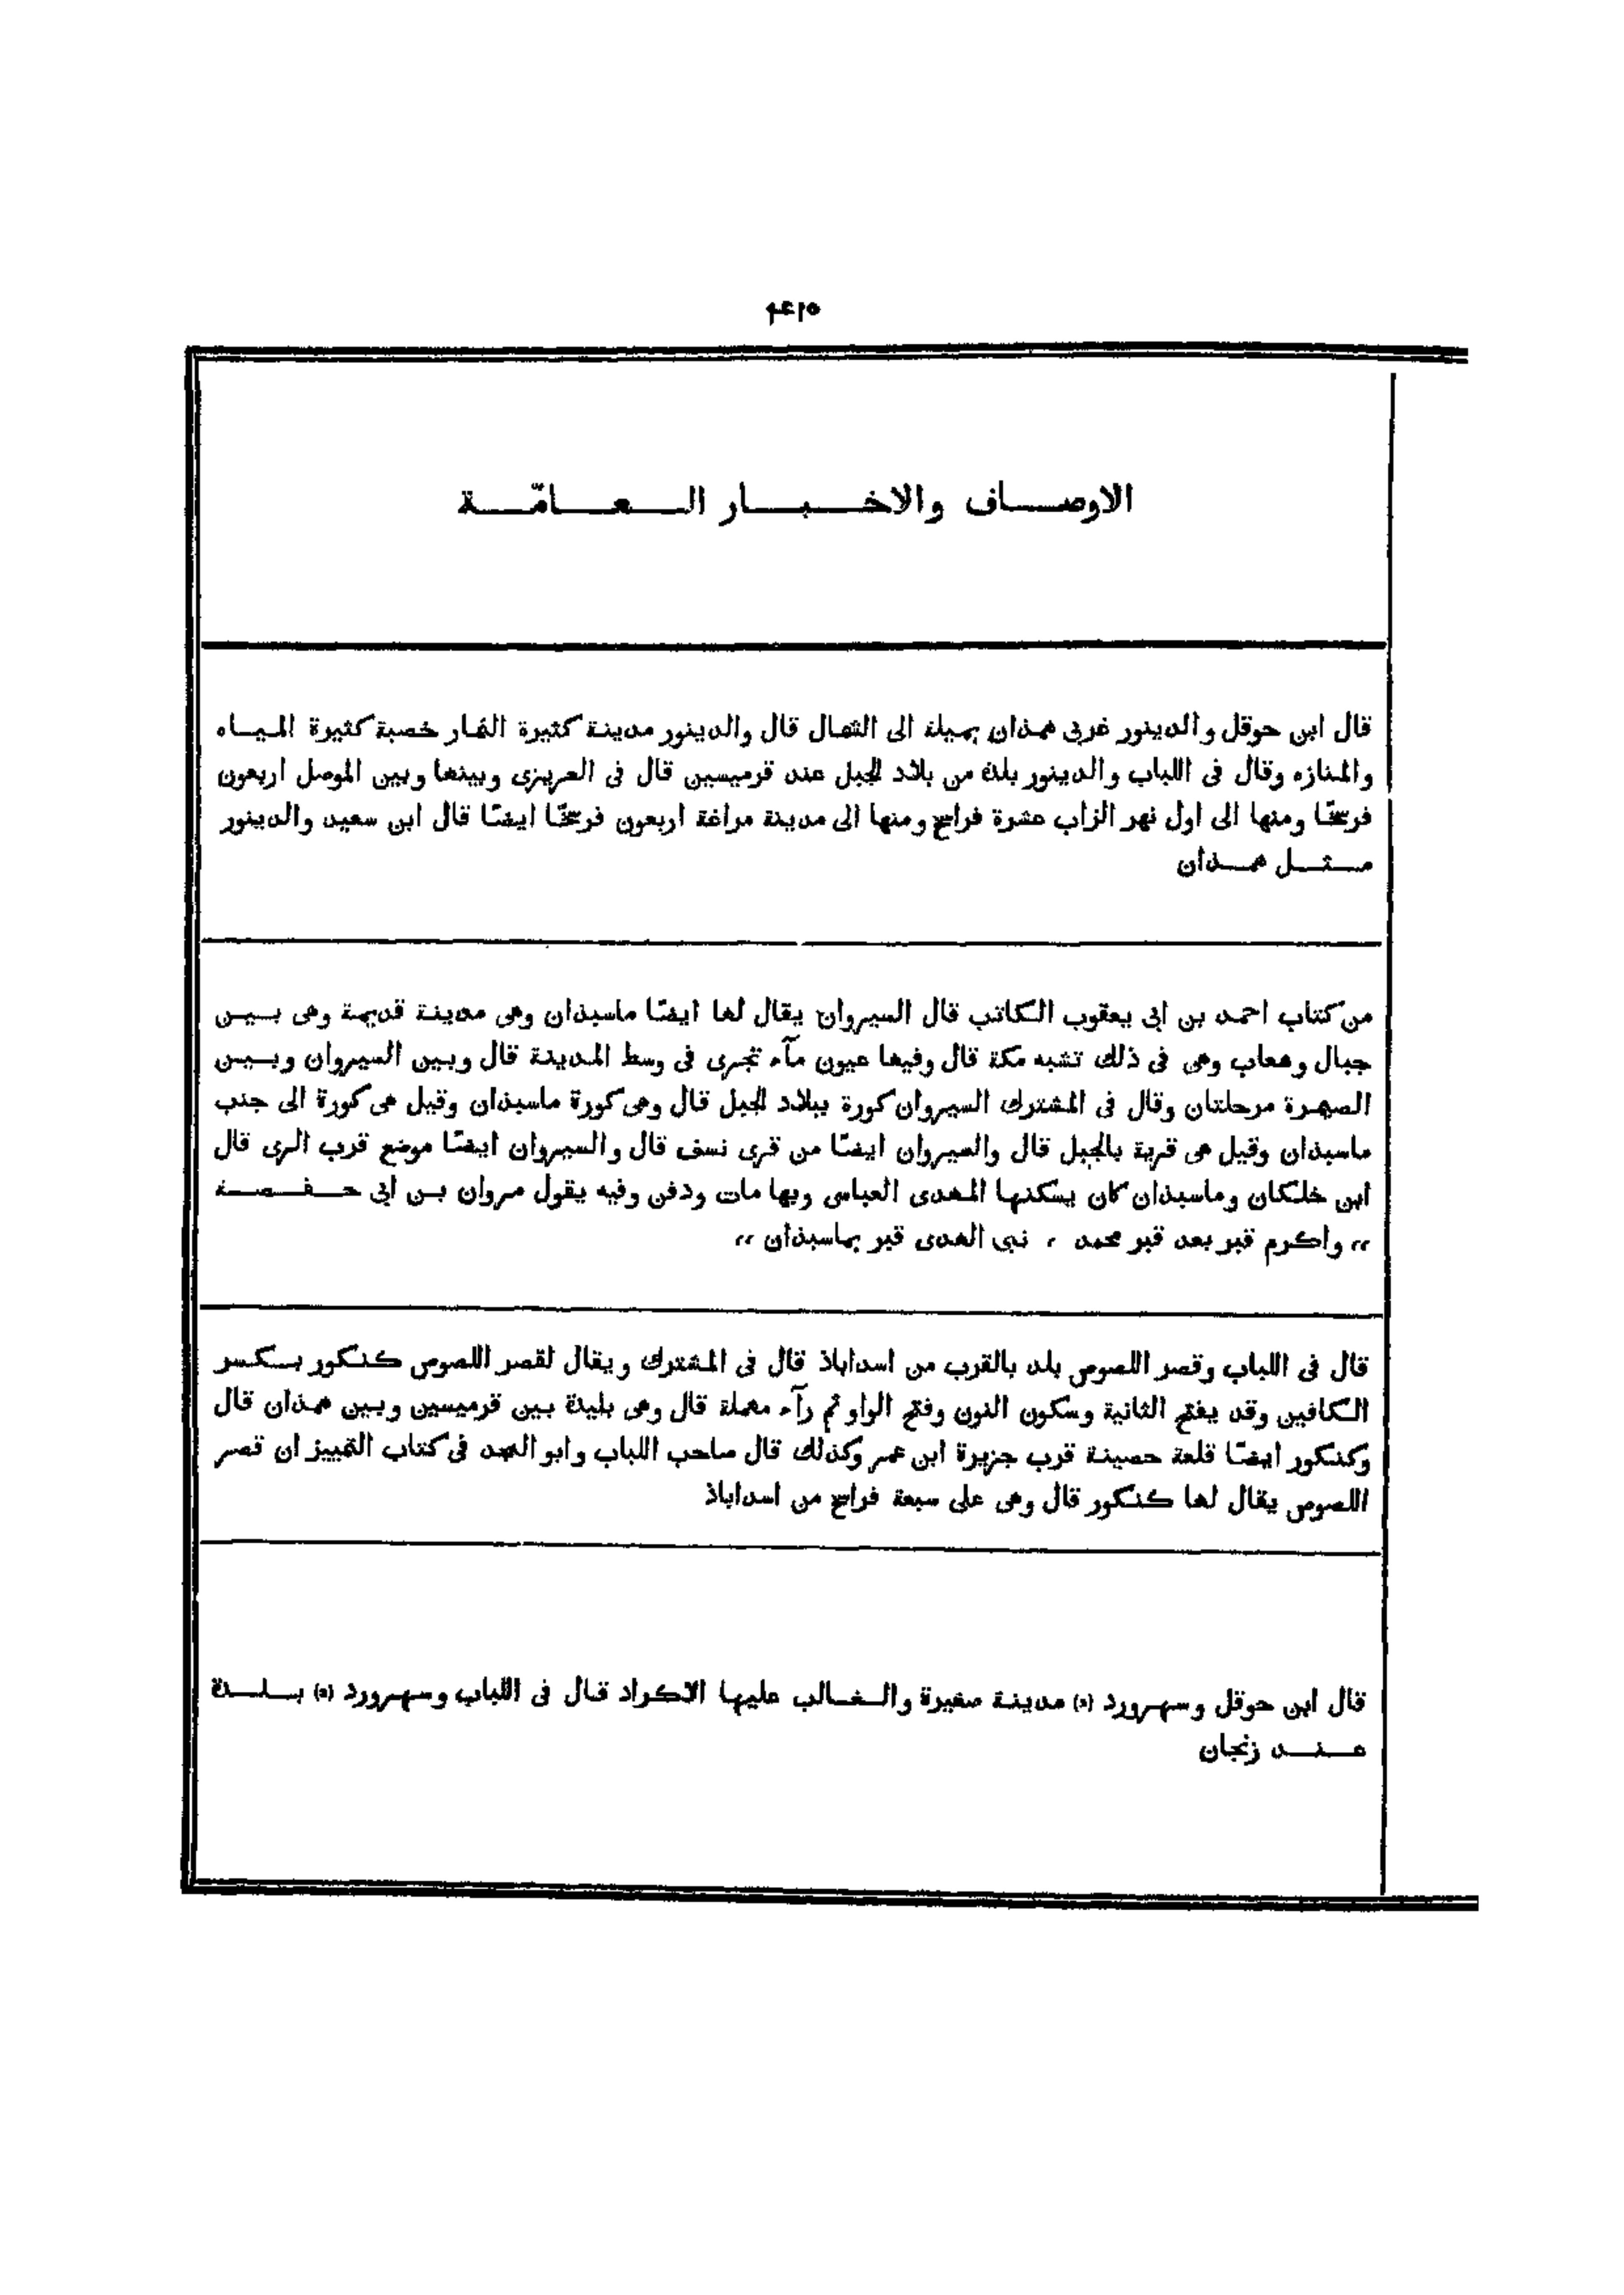 ٤١٥
الاوصاف والاخبار العامّة
قال ابن حوقل والدينور غربى همذان بميلة الى الشمال قال والدينور مدينة كثيرة الثمار خصبة كثيرة المياه
والمنازه وقال فى اللباب والدينور بلدة من بلاد الجبل عند قرميسين قال فى العزيزى وبينها وبين الموصل اربعون
فرسخًا ومنها الى اول نهر الزاب عشرة فراسخ ومنها الى مدينة مراغة اربعون فرسخًا ايضًا قال ابن سعيد والدينور
مثل همذان
من كتاب احمد بن ابى يعقوب الكاتب قال السيروان يقال لها ايضًا ماسبذان وهى مدينة قديمة وهى بين
جبال وشعاب وهى فى ذلك تشبه مكة قال وفيها عيون مآء تجرى فى وسط المدينة قال وبين السيروان وبين
الصيمرة مرحلتان وقال فى المشترك السيروان كورة ببلاد الجبل قال وهى كورة ماسبذان وقيل هى كورة الى جنب
ماسبذان وقيل هى قرية بالجبل قال والسيروان ايضًا من قرى نسف قال والسيروان ايضًا موضع قرب الرى قال
ابن خلكان وماسبذان كان يسكنها المهدى العباسى وبها مات ودفن وفيه يقول مروان بن ابى حفصة
،، واكرم قبر بعد قبر محمد ، نبى الهدى قبر بماسبذان ،،
قال فى اللباب وقصر اللصوص بلد بالقرب من اسداباذ قال فى المشترك ويقال لقصر اللصوص كنكور بكسر
الكافين وقد يفتح الثانية وسكون النون وفتح الواو ثم رآء مهملة قال وهى بليدة بين قرميسين وبين همذان قال
وكنكور ايضًا قلعة حصينة قرب جزيرة ابن عمر وكذلك قال صاحب اللباب وابو المجد فى كتاب التمييز ان قصر
اللصوص يقال لها كنكور قال وهى على سبعة فراسخ من اسداباذ
قال ابن حوقل وسهرورد (ه) مدينة صغيرة والغالب عليها الاكراد قال فى اللباب وسهرورد (ه) بلدة
عند زنجان